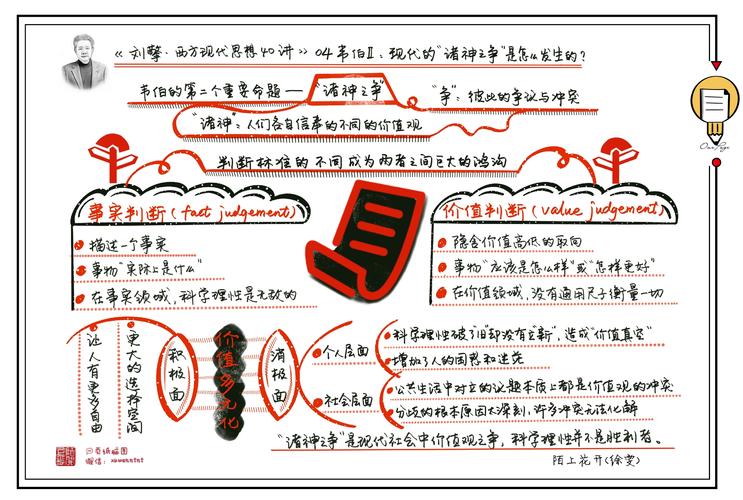 《刘擎·西方现代思想40讲》04韦伯Ⅱ:现代的“诸神之争”是怎么发生的?
韦伯的第二个重要命题——“诸神之争”
“争”:彼此的争议与冲突
“诸神”:人们各自信奉的不同的价值观
判断标准的不同成为两者之间巨大的鸿沟
事实判断(fact judgement)
描述一个事实
事物“实际上是什么”
在事实领域,科学理性是无敌的
价值判断(value judgement)
隐含价值高低的取向
事物“应该是怎么样”或“怎样更好”
在价值领域,没有通用尺子衡量一切
价值多元化
积极面
更大的选择空间
让人有更多自由
消极面
个人层面
科学理性破了“旧”却没有立“新”,造成“价值真空”
增加了人的困惑和迷茫
社会层面
公共生活中对立的议题本质上都是价值观的冲突
分歧的根本原因太深刻,许多冲突无法化解
“诸神之争”是现代社会中价值观之争,科学理性并不是胜利者。
陌上花开(徐雯)
One Page
只要纸脑图
微信:xuwenntnt